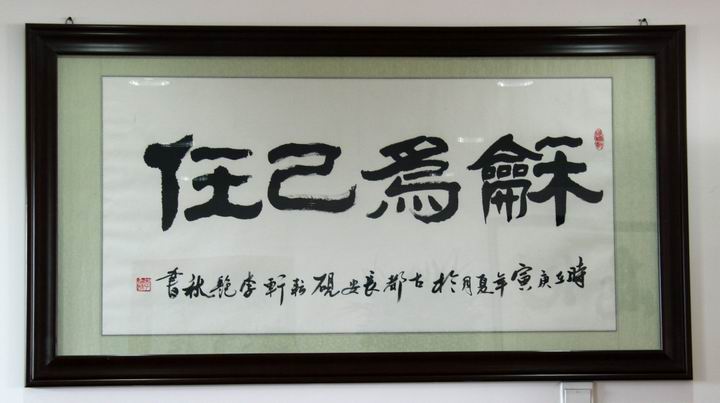 龢為己任
時在庚寅年夏月於古都長安硯耘軒李艳秋書